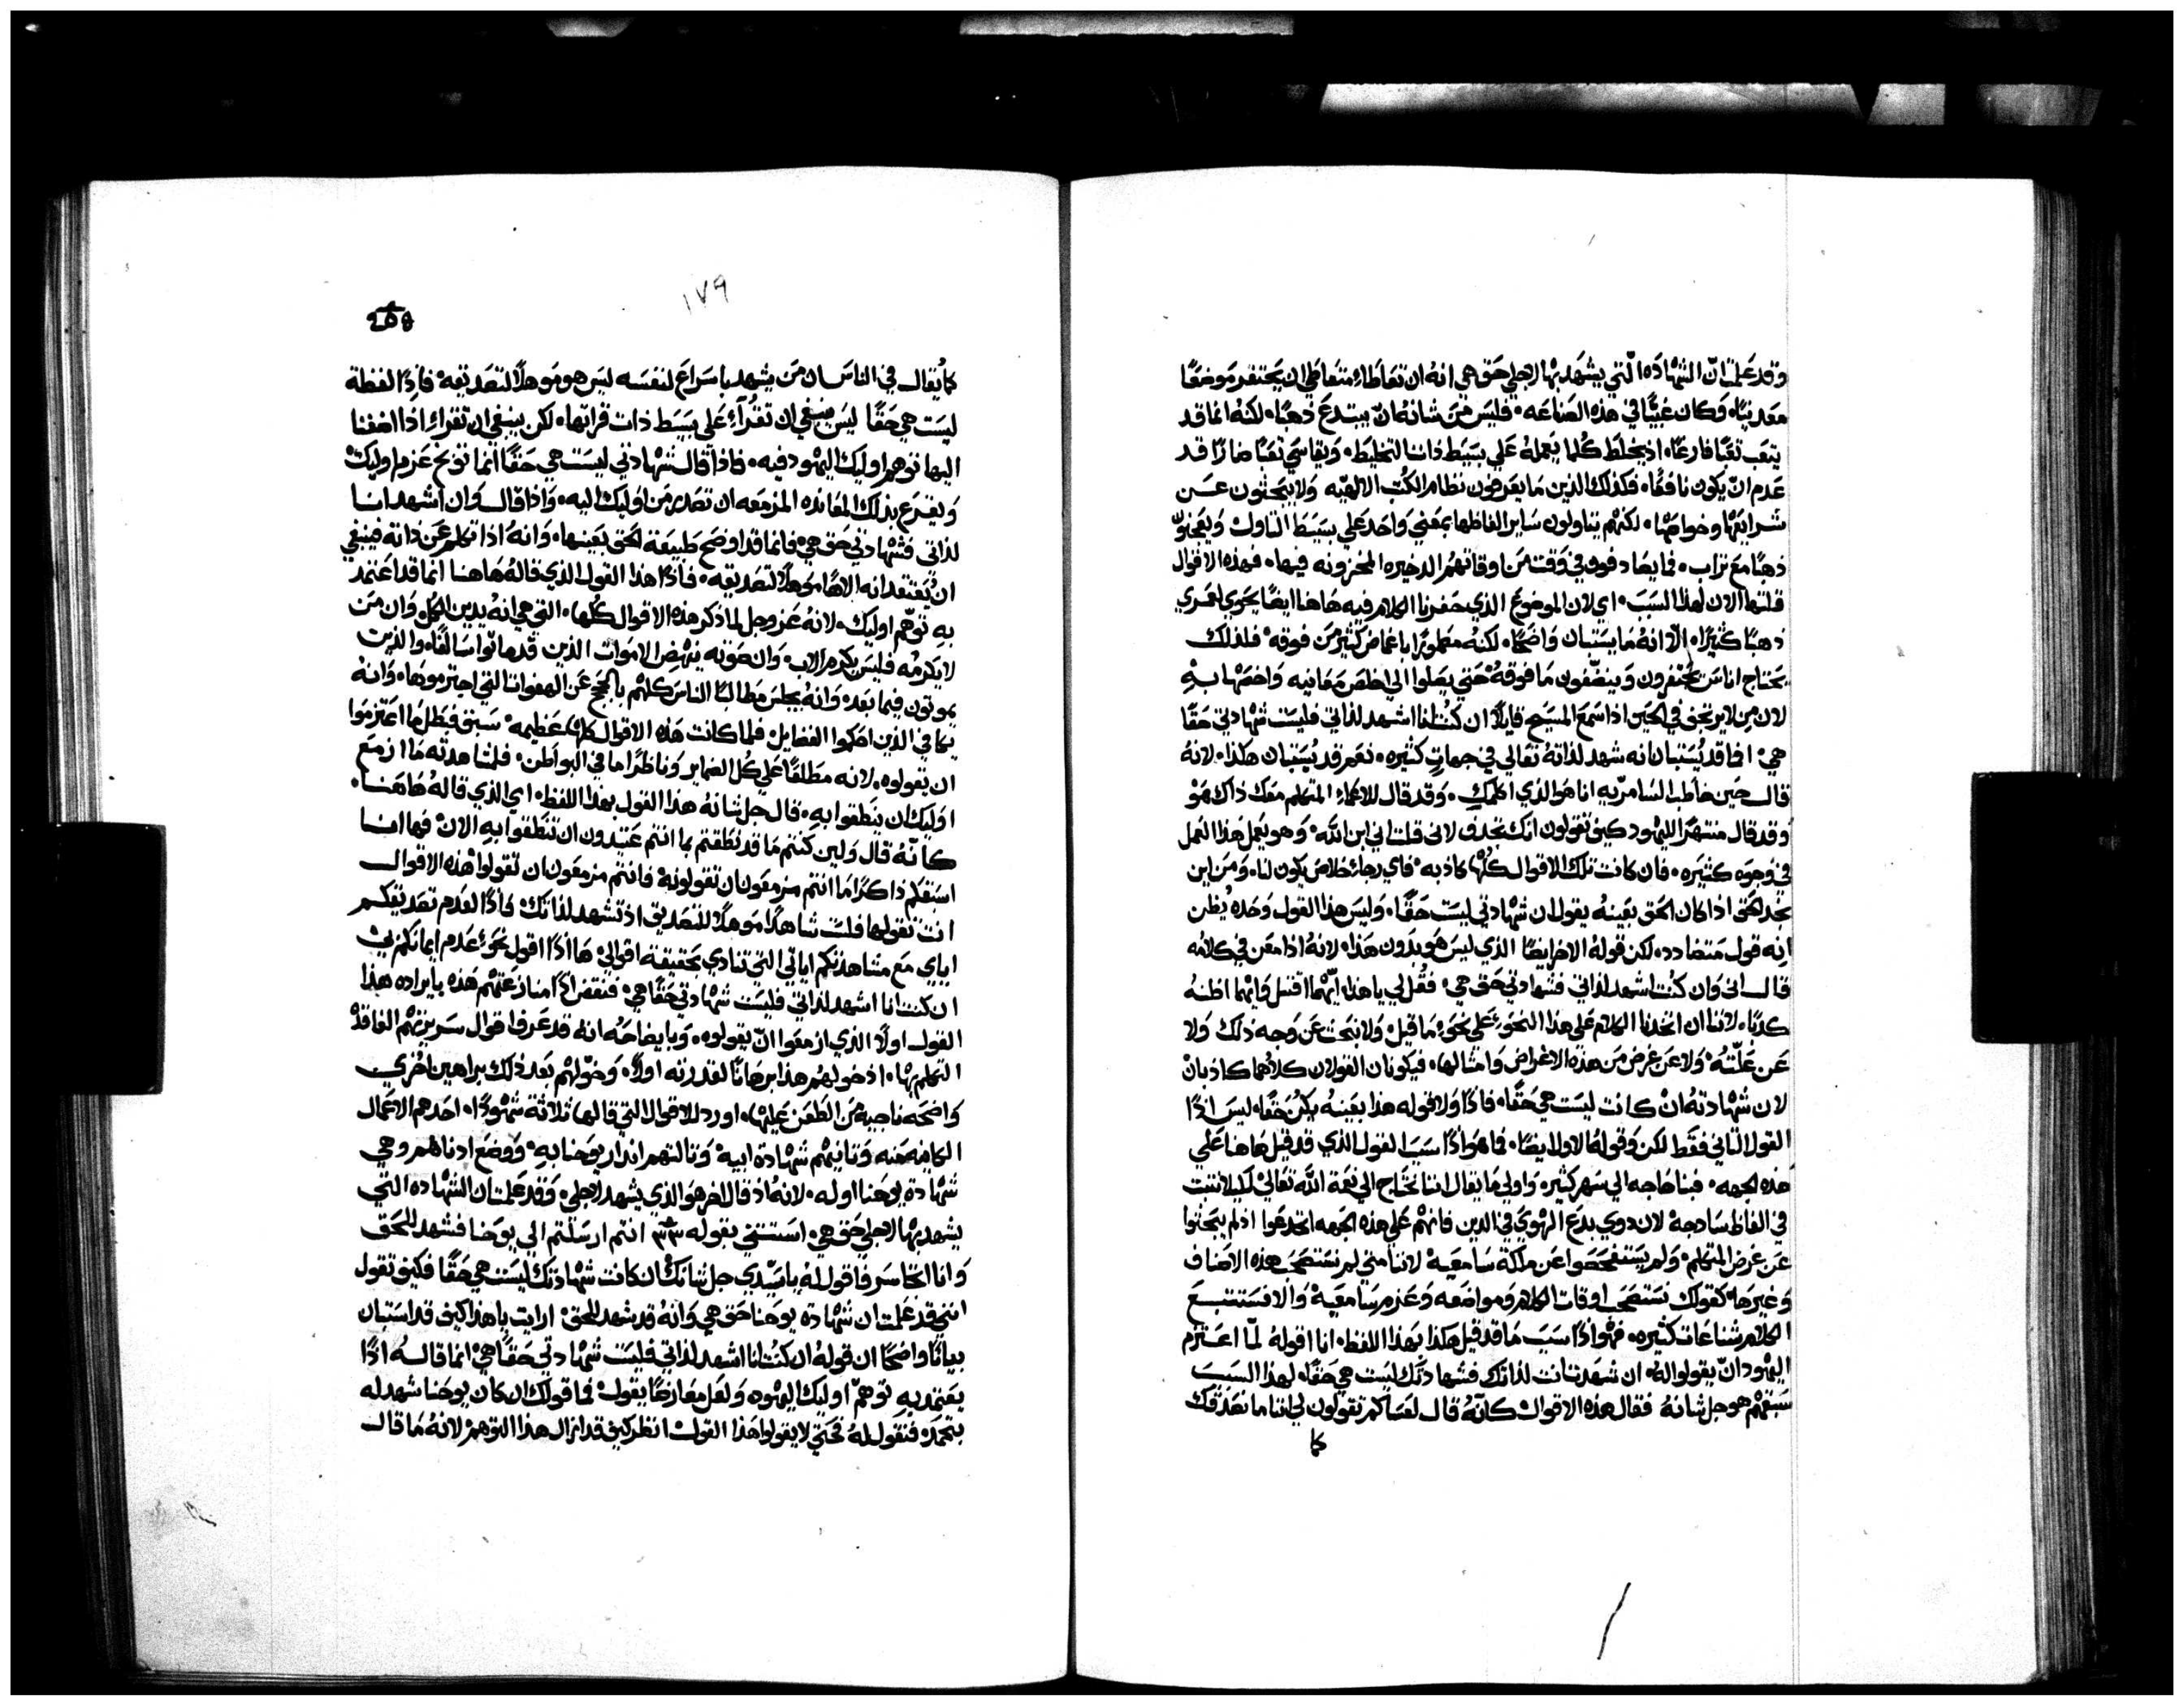 وقد علمت انّ الشهاده الّتي يشهد بها لاجلي حق هي انه ان تعاطاء متعاطي ان يحتفر موضعًا
معدنيًا، وكان غبيًّا في هذه الصناعه، فليس من شانهُ انّ يبتدع ذهبًا، لكنهُ انما قد
يتعب تعبًا فارغًا، اذ يخلط كلما يعملهُ على بسيط ذات التخليط، ويقاسي تعبًا ضارًا قد
عدم انّ يكون نافعًا، فكذلك الذين ما يعرفون نظام الكُتب الالهيّه ولا يبحثون عن
شرايعها وخواصها، لكنهم يتناولون ساير الفاظها بمعني واحد علي بسيط التناول ويعجنون
ذهبًا مع تراب، فما يصادفون في وقت من اوقاتهم الدخيره المخزونه فيها، فهذه الاقوال
قلتها الان لهذا السبب، اي لان الموضع الذي حضرنا الكلام فيه هاهنا ايضًا يحوي لعمري
ذهبًا كثيرًا، الّا انهُ ما يستبان واضحًا، لكنهُ مطمورًا باغماض كثير من فوقه، فلذلك
يحتاج اناس يحتفرون وينضّفون ما فوقهُ حتي يصلوا الي اخلص معانيه واخصها به
لان من لا يرتجى في الحين اذا سمع المسيح قايلًا ان كُنت انا اشهد لذاتي فليست شهادتي حقًا
هي، انما قد يُستبان انه شهد لذاتهُ تعالي في جهاتٍ كثيره، نعم قد يُستبان هكذا، لانهُ
قال حين خاطب السامريّه انا هو الذي اكلمكِ، وقد قال للاعمي المتكلم معك ذاك هو
وقد قال منتهرًا لليهود كيف تقولون انك تجدف لاني قلت اني ابن الله، وهو يعمل هذا العمل
في وجوه كثيره، فان كانت تلك الاقوال كلُّها كاذبه، فاي رجاء خلاص يكون لنا، ومن اين
نجد الحق اذا كان الحق بعينهُ يقول ان شهادتي ليست حقًا، وليس هذا القول وحده يُظن
انه قول متضادد، لكن قولهُ الاخر ايضًا الذي ليس هو بدون هذا، لانهُ اذ امعن في كلامه
قال اني وان كُنت اشهد لذاتي فشهادتي حق هي، فقُل لي يا هذا ايّهما اقتبل وايّهما اظنهُ
كدبًا، لاننا ان اتخدنا الكلام علي هذا النحوء علي نحوء ما قيل، ولا نبحث عن وجه ذلك ولا
عن علّتهُ، ولا عن غرض من هذه الاغراض وامثالها، فيكونان القولان كلاهما كاذبانْ
لان شهادتهُ انْ كانت ليست هي حقًا، فاذًا ولا قوله هذا بعينهُ يكنُ حقًا، ليس اذًا
القول الثاني فقط لكن وقولهُ الاول ايضًا، فما هو اذًا سبب القول الذي قد قيل هاهنا علي
هذه الجهه، فبنا حاجه الي سهر كثير، واولي ما يقال اننا نحتاج الي نعمة الله تعالي لكيلا نتبت
في الفاظ سادجه، لان دوي بدع الهوي في الدين فانهم علي هذه الجهه انخدعوا اذ لم يبحثوا
عن غرض المتكلم، ولم يستفحصوا عن ملكة سامعيهْ لاننا متي لم نستصحب هذه الاصناف
وغيرها، كقولك نستصحب اوقات الكلام ومواضعه وعزم سامعيهْ والا فستتبع
الكلام شناعات كثيره، فهو اذًا سبب ما قد قيل هكذا بهذا اللفظ، انا اقولهُ لمّا اعتزم
اليهود انّ يقولوا لهُ، ان شهدت انت لذاتك فشهادتك ليست هي حقًا، لهذا السبب
سبقهم هو جل شانهُ فقال هذه الاقوال، كانّهُ قال لعساكم تقولون لي اننا ما نصدقك
كما
١٧٩
208
كما يُقال في الناس ان من يشهد باسراع لنفسه ليس هو موهلًا لتصديقه، فاذًا لفظة
ليست هي حقًا ليس ينبغي ان تقُراء علي بسيط ذات قراتها، لكن ينبغي ان تقراء اذا اضفنا
اليها توهم اوليك اليهود فيه، فاذا قال شهادتي ليست هي حقًا انما توبّخ عزم اوليك
ويقرع بذلك المعانده المزمعه ان تصدر من اوليك اليه، واذا قال وان اشهد انا
لذاتي فشهادتي حق هي، فانما قد اوضح طبيعة الحق بعينها، وانهُ اذا تكلم عن ذاته فينبغي
ان يُعتقد انه الاهًا موهلًا لتصديقه، فاذًا هذا القول الذي قالهُ هاهنا انما قد اعتمد
به توهّم اوليك، لانهُ عز وجل لما ذكر هذه الاقوال كُلها، التي هي انهُ يدين الكل، وان من
لا يكرمه فليس يكرم الاب، وان صوته ينهض الاموات الذين قد ماتوا سالفًا، والذين
يموتون فيما بعد، وانهُ يجلس مطالبًا الناس كلهم بالحجج عن الهفوات التي اجترموها، وانهُ
يكافي الذين احكموا الفضايل فلما كانت هذه الاقوال كلها عظيمه، سبق فبطل ما اعتزموا
ان يقولوه، لانه مطلقًا علي كل الضماير وناظرًا ما في البواطن، فلمشاهدته ما ازمع
اوليك ان ينطقوا به، قال جل شانهُ هذا القول بهذا اللفظ، اي الذي قالهُ هاهنا،
كانّهُ قال ولين كنتم ما قد نطقتم بما انتم عتيدون ان تنطقوا به الان، فها انا
اسبقكم ذاكرًا ما انتم مزمعون ان تقولونهُ، فانتم مزمعون ان تقولوا هذه الاقوال
انت تقولها فلست شاهدًا موهلًا للتصديق اذ تشهد لذاتك، فاذًا لعدم تصديقكم
اياي مع مشاهدتكم اياتي التي تنادي بحقيقة اقوالي، ها اذًا اقول نحوء عدم ايمانكم بي
ان كنت انا اشهد لذاتي فليست شهادتي حقًا هي، فنقض اذًا منازعتهم هذه بايراده هذا
القول اولًا الذي ازمعوا انّ يقولوه، وبايضاحهُ انه قد عرف اقوال سريرتهم الفاقدة
التكلم بها، اذ خولهم هذا برهانًا لقدرته اولًا، وخوّلهم بعد ذلك براهين اخُري
واضحه ناجية من الطعن عليها، اورد للاقوال التي قالها ثلاثة شهودًا، احدهم الاعمال
الكاينه منه، وثانيهم شهادة ابيه، وثالثهم انذار يوحنا به، ووضع ادناهم وهي
شهادة يوحنا اوله، لانهُ اذ قال اخر هو الذي يشهد لاجلي، وقد علمت ان الشهاده التي
يشهد بها لاجلي حق هي، استثنى بقوله ٣٣ انتم ارسلتم الى يوحنا فشهد للحق
وانا اتجاسر فاقول لهُ يا سيّدي جل شانكَ ان كانت شهادتك ليست هي حقًا فكيف تقول
انني قد علمت ان شهادة يوحنا حق هي، وانهُ قد شهد للحق، ارايت يا هذا كيف قد استبان
بيانًا واضحًا ان قولهُ ان كنت انا اشهد لذاتي فليست شهادتي حقًا هي، انما قاله اذًا
يعتمد به توهّم اوليك اليهود، ولعل معارضًا يقول، فما قولك ان كان يوحنا شهد له
بتحمّد، فنقول لهُ فحتّي لا يقولوا هذا القول، انظر كيف قد ازال هذا التوهم، لانهُ ما قال